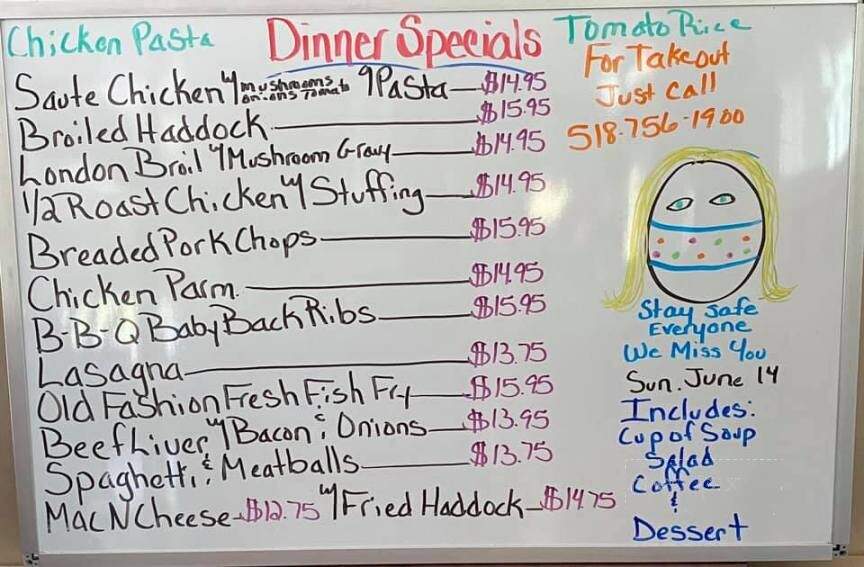 Chicken Pasta
Dinner Specials
Tomato Rice
Saute Chicken w/ mushrooms onions Tomato & Pasta $14.95
Broiled Haddock $15.95
London Broil w/ Mushroom Gravy $14.95
1/2 Roast Chicken w/ Stuffing $14.95
Breaded Pork Chops $15.95
Chicken Parm. $14.95
B-B-Q Baby Back Ribs $15.95
Lasagna $13.75
Old Fashion Fresh Fish Fry $15.95
Beef Liver w/ Bacon & Onions $13.95
Spaghetti & Meatballs $13.75
Mac N Cheese $12.75 w/ Fried Haddock $14.75
For Takeout
Just Call
518-756-1900
Stay Safe
Everyone
We Miss You
Sun. June 14
Includes:
Cup of Soup
Salad
Coffee
&
Dessert